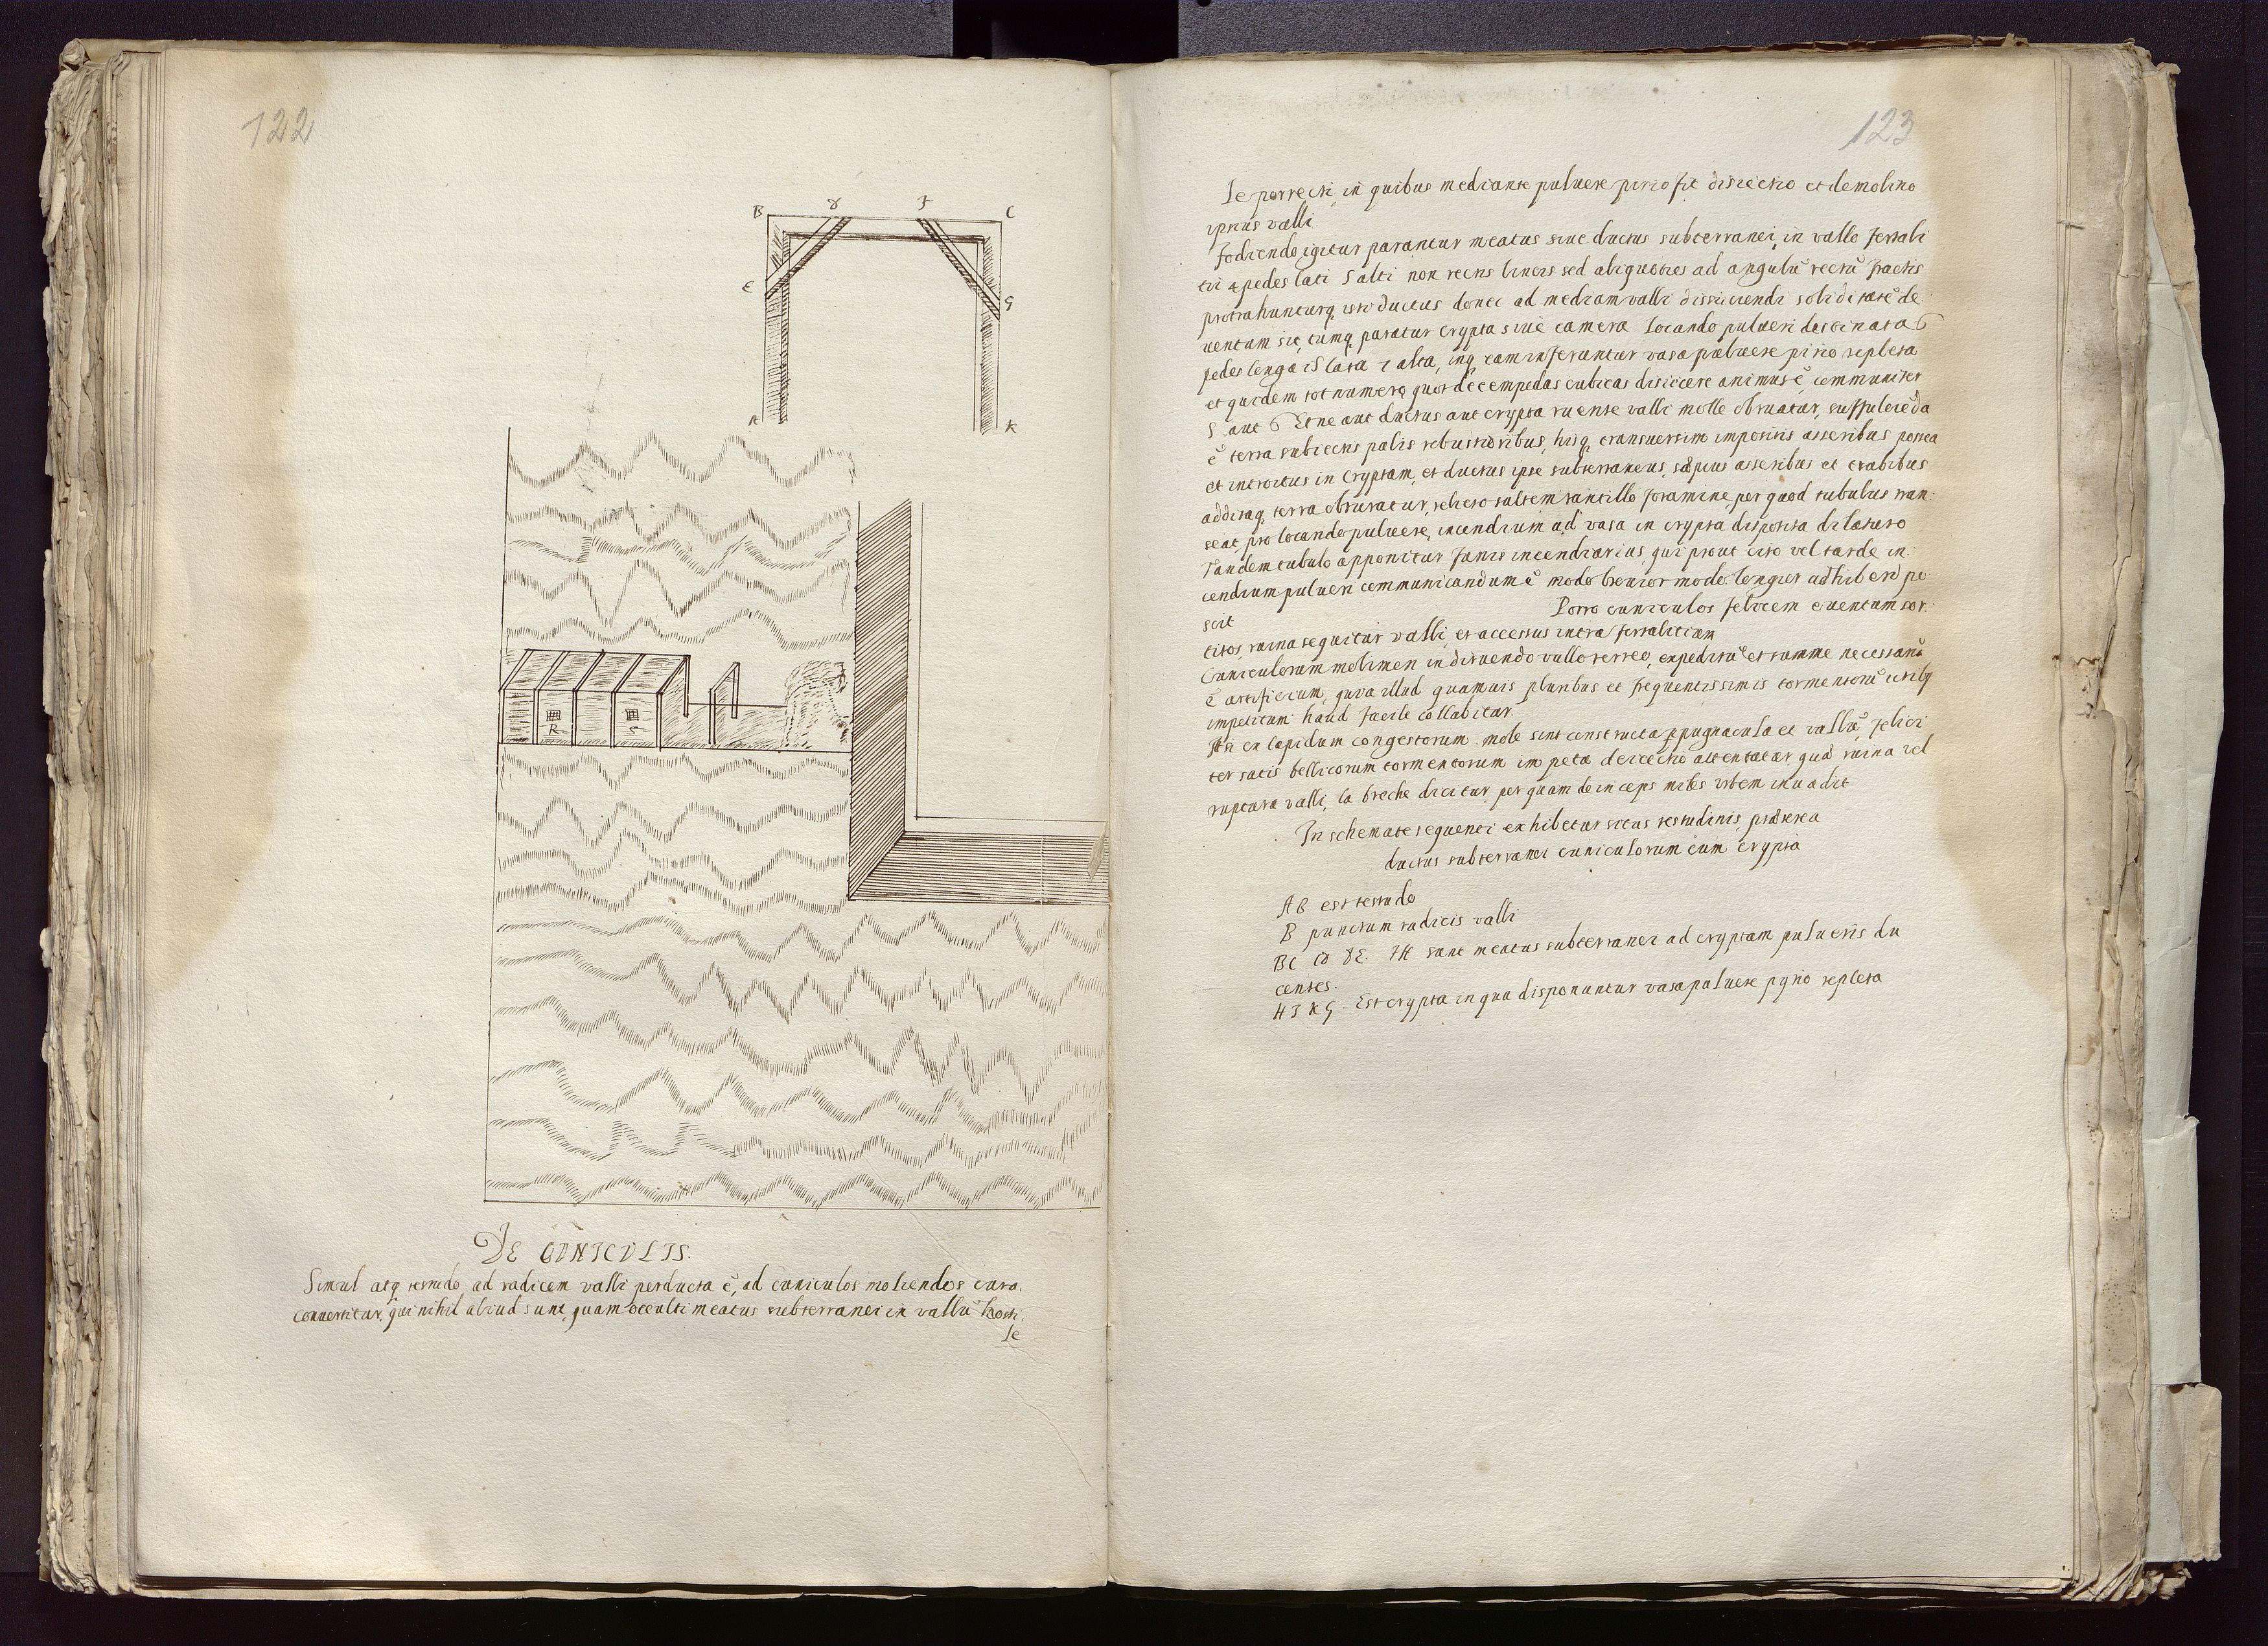 122
B D F C
E G
A K
R S
DE CUNICULIS.
Simul atq testudo, ad radicem valli perducta ē, ad cuniculos moliendos cura
convertitur, qui nihil aliud sunt, quam occulti meatus subterranei in vallū hosti,
le
123
le porrecti, in quibus mediante pulvere pirio fit disiectio et demolitio
ipsius valli
Fodiendo igitur parantur meatus sive ductus subterranei, in vallo
4 pedes lati 5 alti non rectis lineis sed aliquoties ad angulū rectū fractis
protrahunturq isti ductus donec ad mediam valli dissiiciendi soliditatē de
ventum sit, tumq paratur crypta sive camera locando pulveri destinata 6
pedes longa lata 7 alta, inq eam inferuntur vasa pulvere pirio repleta
et quidem tot numero quot decempedas cubicas disiicere animus ē, communiter
5 aut 6 Et ne aut ductus aut crypta ruente valli molle obruatur, suffulciēda
ē terra subiectis palis robustioribus, hisq transversim impositis asseribus postea
et introitus in Cryptam, et ductus ipse subterraneus, sæpius asseribus et trabibus
additaq terra obturatur, relicto saltem tantillo foramine, per quod tubulus tran-
seat pro locando pulvere, incendium ad vasa in crypta disposita dilaturo
Tandem tubulo apponitur funis incendiarius, qui prout cito vel tarde in-
cendium pulveri communicandum ē modo brevior modo longior adhiberi po
scit
Porro cuniculos felicem eventum sor-
titos, ruina sequitur valli, et accessus intra
Cuniculorum molimen in diruendo vallo terreo, expeditū et summe necessariū
ē artificium, quia illud quamvis pluribus et frequentissimis tormentorū ictibq
impetitum haud facile collabitur.
At si ex lapidum congestorum mole sint constructa ppugnacula et vallū, felici
ter satis bellicorum tormentorum impetu deiectio attentatur, quæ ruina vel
ruptura valli, la breche dicitur, per quam deinceps miles urbem invadit
In schemate sequenti exhibetur situs testudinis, præterea
ductus subterranei cuniculorum cum crypta
AB est testudo
B punctum radicis valli
BC CD DE. FH sunt meatus subterranei ad cryptam pulveris du
centes.
HIKG - Est crypta in qua disponuntur vasa pulvere pyrio repleta